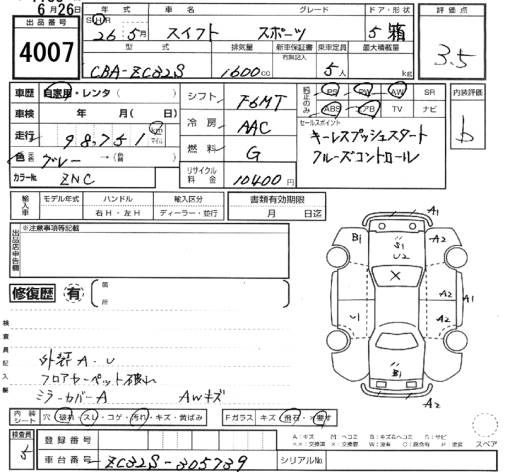 6月26日
出品番号
4007
年式 車名 グレード ドア・形状 評価点
26年 5月 スイフト スポーツ 5 箱 3.5
型式 排気量 新車保証書 有無記入 乗車定員 最大積載量
CBA-ZC32S 1600cc 5人 kg
車歴 自家用・レンタ( ) シフト F6MT 純正のみ PS PW AW SR 内装評価
車検 年 月( 日) 冷房 AAC ABS AB TV ナビ b
走行 98,751 km マイル 燃料 G セールスポイント
キーレスプッシュスタート
クルーズコントロール
色 グレー →(前 色)
カラーNo. ZNC リサイクル料金 10400円
輸入車 モデル年式 ハンドル 輸入区分 書類有効期限
右H・左H ディーラー・並行 月 日迄
出品店申告欄 ※注意事項等記載
修復歴 有 箇所
検査員記入欄
外装 A.U
フロアカーペット破れ
ミラーカバーA AWキズ
A1
B1 S1 A2
U2
A2 A1
U1 A2
B1
A2
内装シート 穴・破れ・スレ・コゲ・汚れ・キズ・黄ばみ Fガラス キズ・飛石
検査員 5 登録番号
A:キズ
スペア
車台番号 ZC32S-305739 シリアルNo.